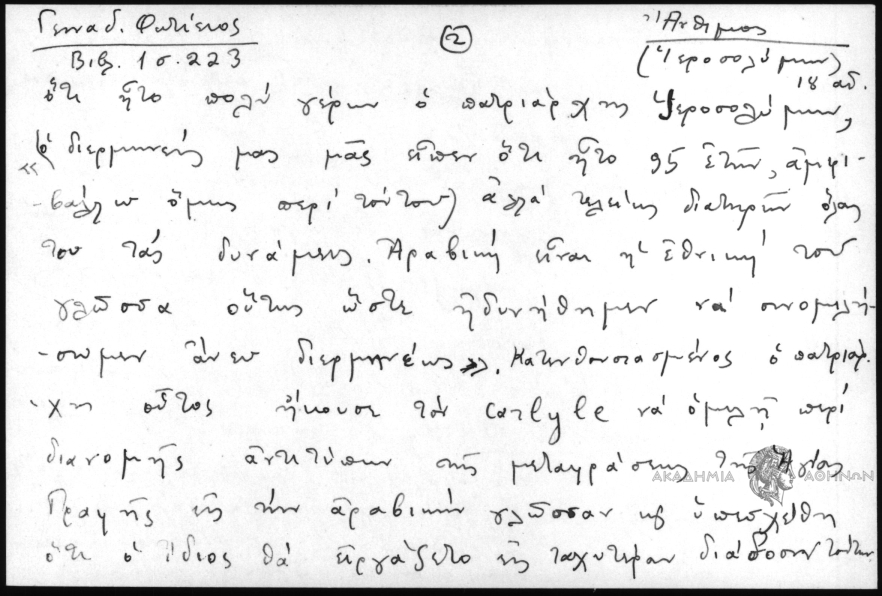 Γενναδ. Φωτίειος
Βιβλ. 1 σ. 223
2
Ἄνθιμος
(Ἱεροσολύμων)
18 αἰ.
ὅτι ἦτο πολύ γέρων ὁ πατριάρχης Ἱεροσολύμων,
«(ὁ διερμηνεύς μας μᾶς εἶπεν ὅτι ἦτο 95 ἐτῶν, ἀμφι-
-βάλλω ὅμως περί τούτου) ἀλλά τελείως διατηρῶν ὅλας
του τάς δυνάμεις. Ἀραβική εἶναι ἡ ἐθνική του
γλῶσσα οὕτως ὥστε ἠδυνήθημεν νά συνομιλή-
-σωμεν ἄνευ διερμηνέως». Κατενθουσιασμένος ὁ πατριάρ-
-χης οὗτος ἤκουσε τόν Carlyle νά ὁμιλῇ περί
διανομῆς ἀντιτύπων τῆς μεταφράσεως τῆς Ἁγίας
Γραφῆς εἰς τήν ἀραβικήν γλῶσσαν κ ὑπεσχέθη
ὅτι ὁ ἴδιος θά εἰργάζετο εἰς ταχυτέραν διάδοσιν τούτων
ΑΚΑΔΗΜΙΑ ΑΘΗΝΩΝ